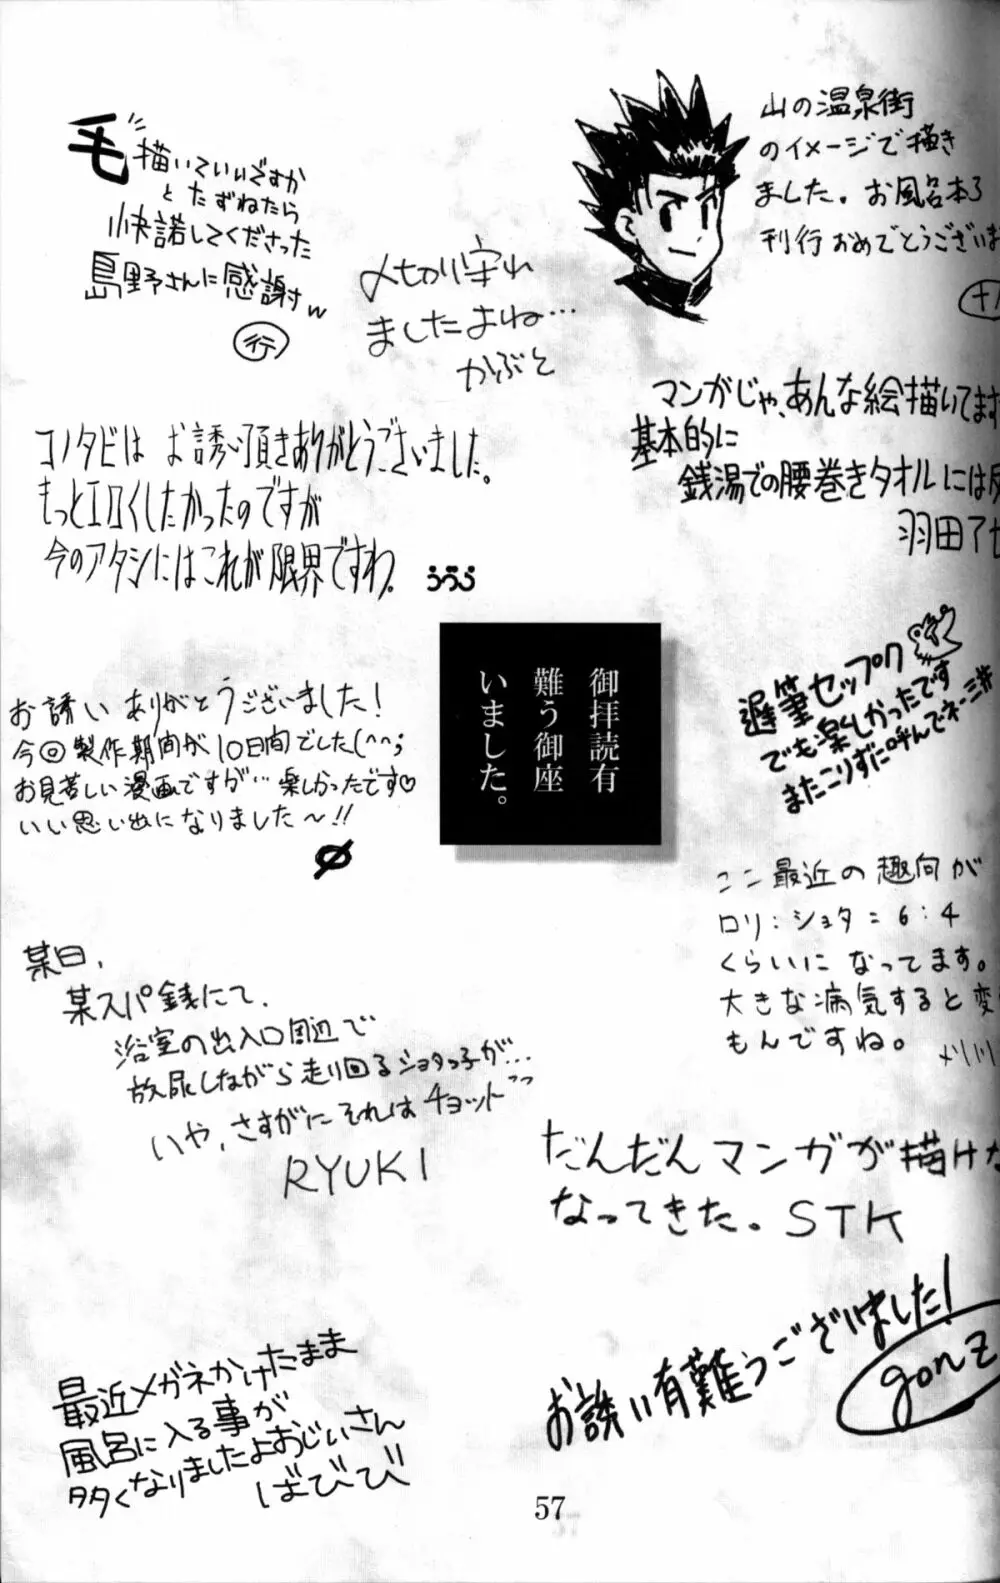 毛 描いていいですか
とたずねたら
快諾してくださった
島野さんに感謝w
行
〆切り守れ
ましたよね…
かぶと
山の温泉街
のイメージで描き
ました。お風呂本3
刊行おめでとうございま
マンガじゃ、あんな絵描いてます
基本的に
銭湯での腰巻きタオルには反
羽田了せ
コノタビは お誘い頂きありがとうございました。
もっとエロくしたかったのですが
今のアタシにはこれが限界ですわ。
うづら
御拝読有
難う御座
いました。
遅筆セップク
でも楽しかったです
またこりずに呼んでネ
お誘いありがとうございました!
今回製作期間が10日間でした(^^;
お見苦しい漫画ですが… 楽しかったです♡
いい思い出になりました〜!!
ここ最近の趣向が
ロリ:ショタ=6:4
くらいになってます。
大きな病気すると変
もんですね。
某日、
某スパ銭にて、
浴室の出入口周辺で
放尿しながら走り回るショタっ子が…
いや、さすがにそれはチョット
RYUKI
だんだんマンガが描けな
なってきた。STK
お誘い有難うございました!
gonz
最近メガネかけたまま
風呂に入る事が
多くなりましたよおじいさん
ばびび
57